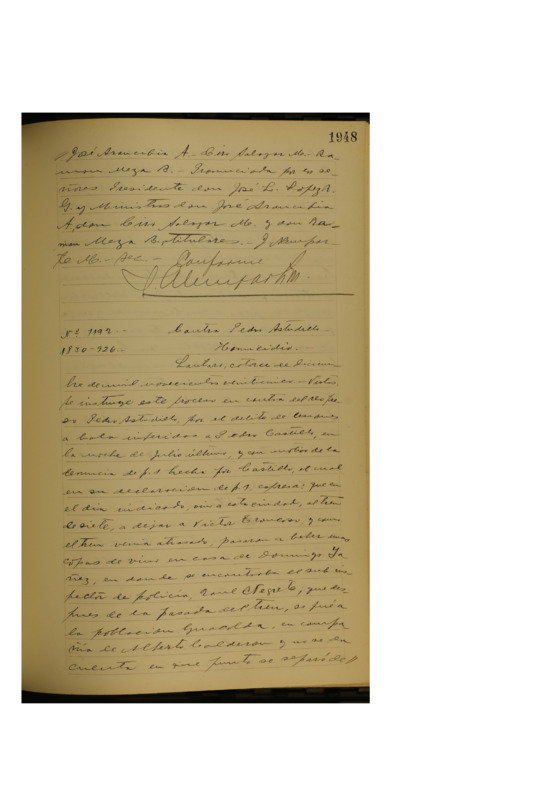 1948
José Aranecibia A.- Ciro Salazar M.- Ra-
món Meza B.- Pronunciada por los se-
ñores Presidente don José L. López
G. y Ministros don José Aranecibia
A, don Ciro Salazar M. y don Ra-
món Meza B, titulares.- J.
M.- Sec.- Conforme
Contra Pedro Astudillo
1830-926.- Homicidio.
catorce de Diciem-
bre de mil novecientos veintiseis.- Vistos,
Se instruye este proceso en contra del reo Pe-
dro Astudillo, por el delito de lesiones
a bala inferidas a Pedro Castillo, en
la noche de Julio último, y con motivo de la
denuncia de p.1 hecha por Castillo, el cual
en su declaración de p. expresa: que en
el día indicado, vino a esta ciudad, al tren
de siete, a dejar a Victor Troncoso, y como
el tren venía atrasado, pasaron a beber unas
copas de vino en casa de Domingo Ya-
ñez, en donde se encontraba el sub ins-
pector de policía, Raul Negrete, que des-
pues de la pasada del tren, se fué a
la población Guacolda, en compa-
ñía de Alberto Calderon y no se da
cuenta en que punto se separó de